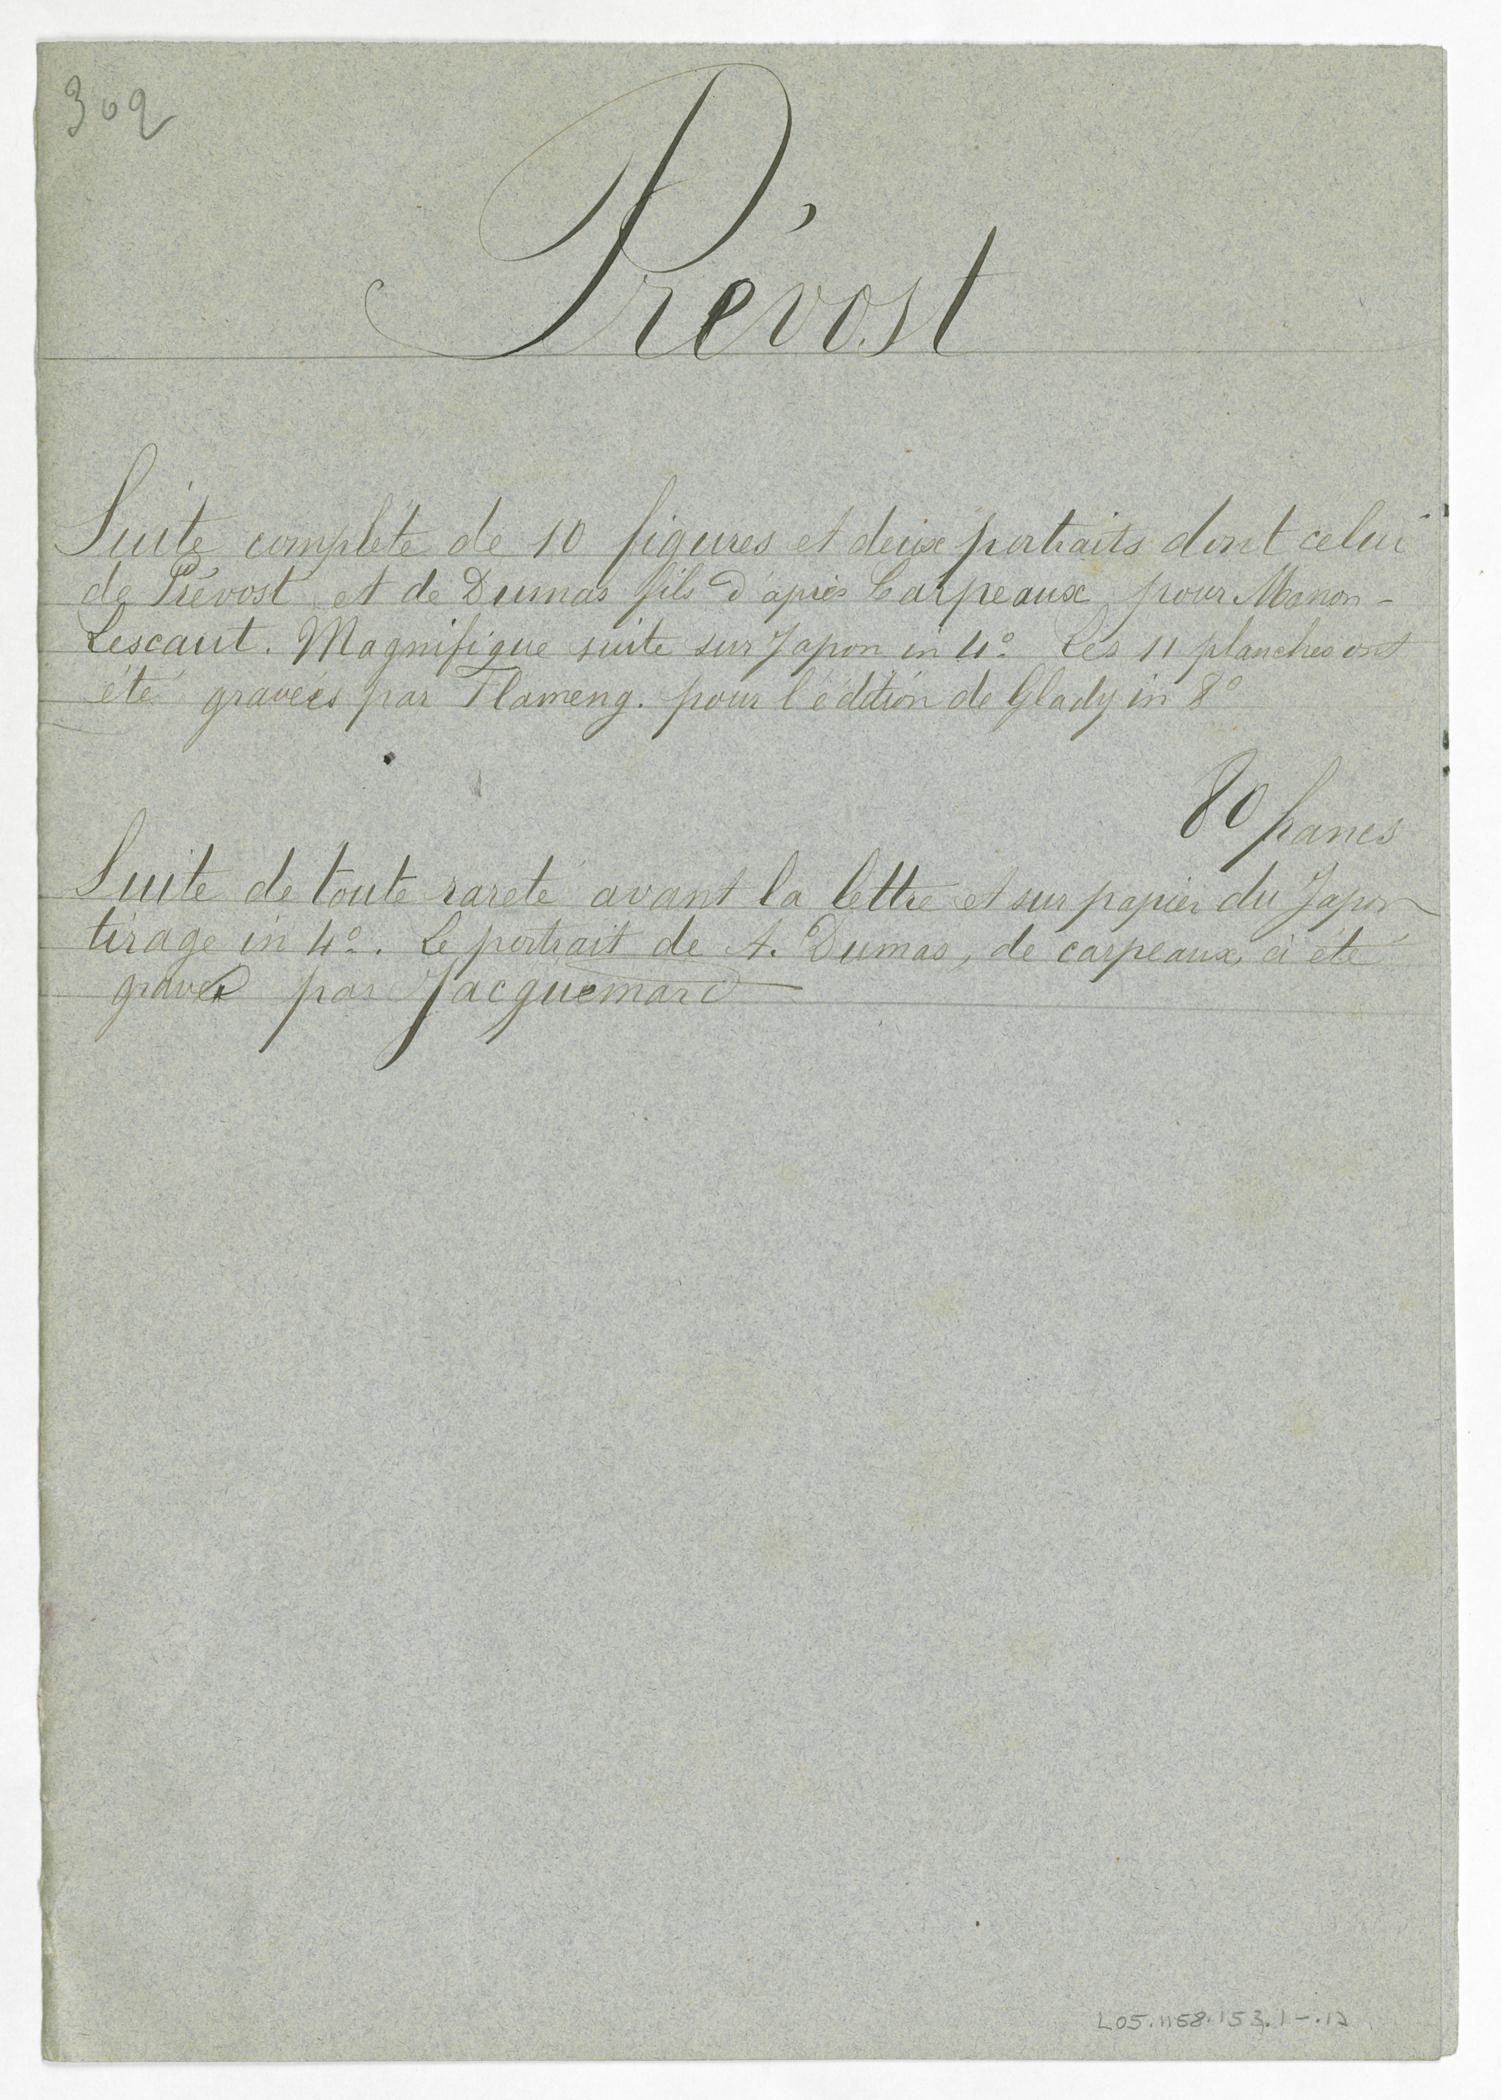 302
Prévost
Suite complète de 10 figures et deux portraits dont celui
de Prévost et de Dumas fils d'après Carpeaux pour Manon-
Lescaut. Magnifique suite sur Japon in 4º Les 11 planches ont
été gravées par Flameng. pour l'édition de Glady in 8º
80 francs
Suite de toute rareté avant la lettre et sur papier du Japon
tirage in 4º. Le portrait de A. Dumas, de carpeaux, a été
gravé par Jacquemard
L05.1158.153.1-.12